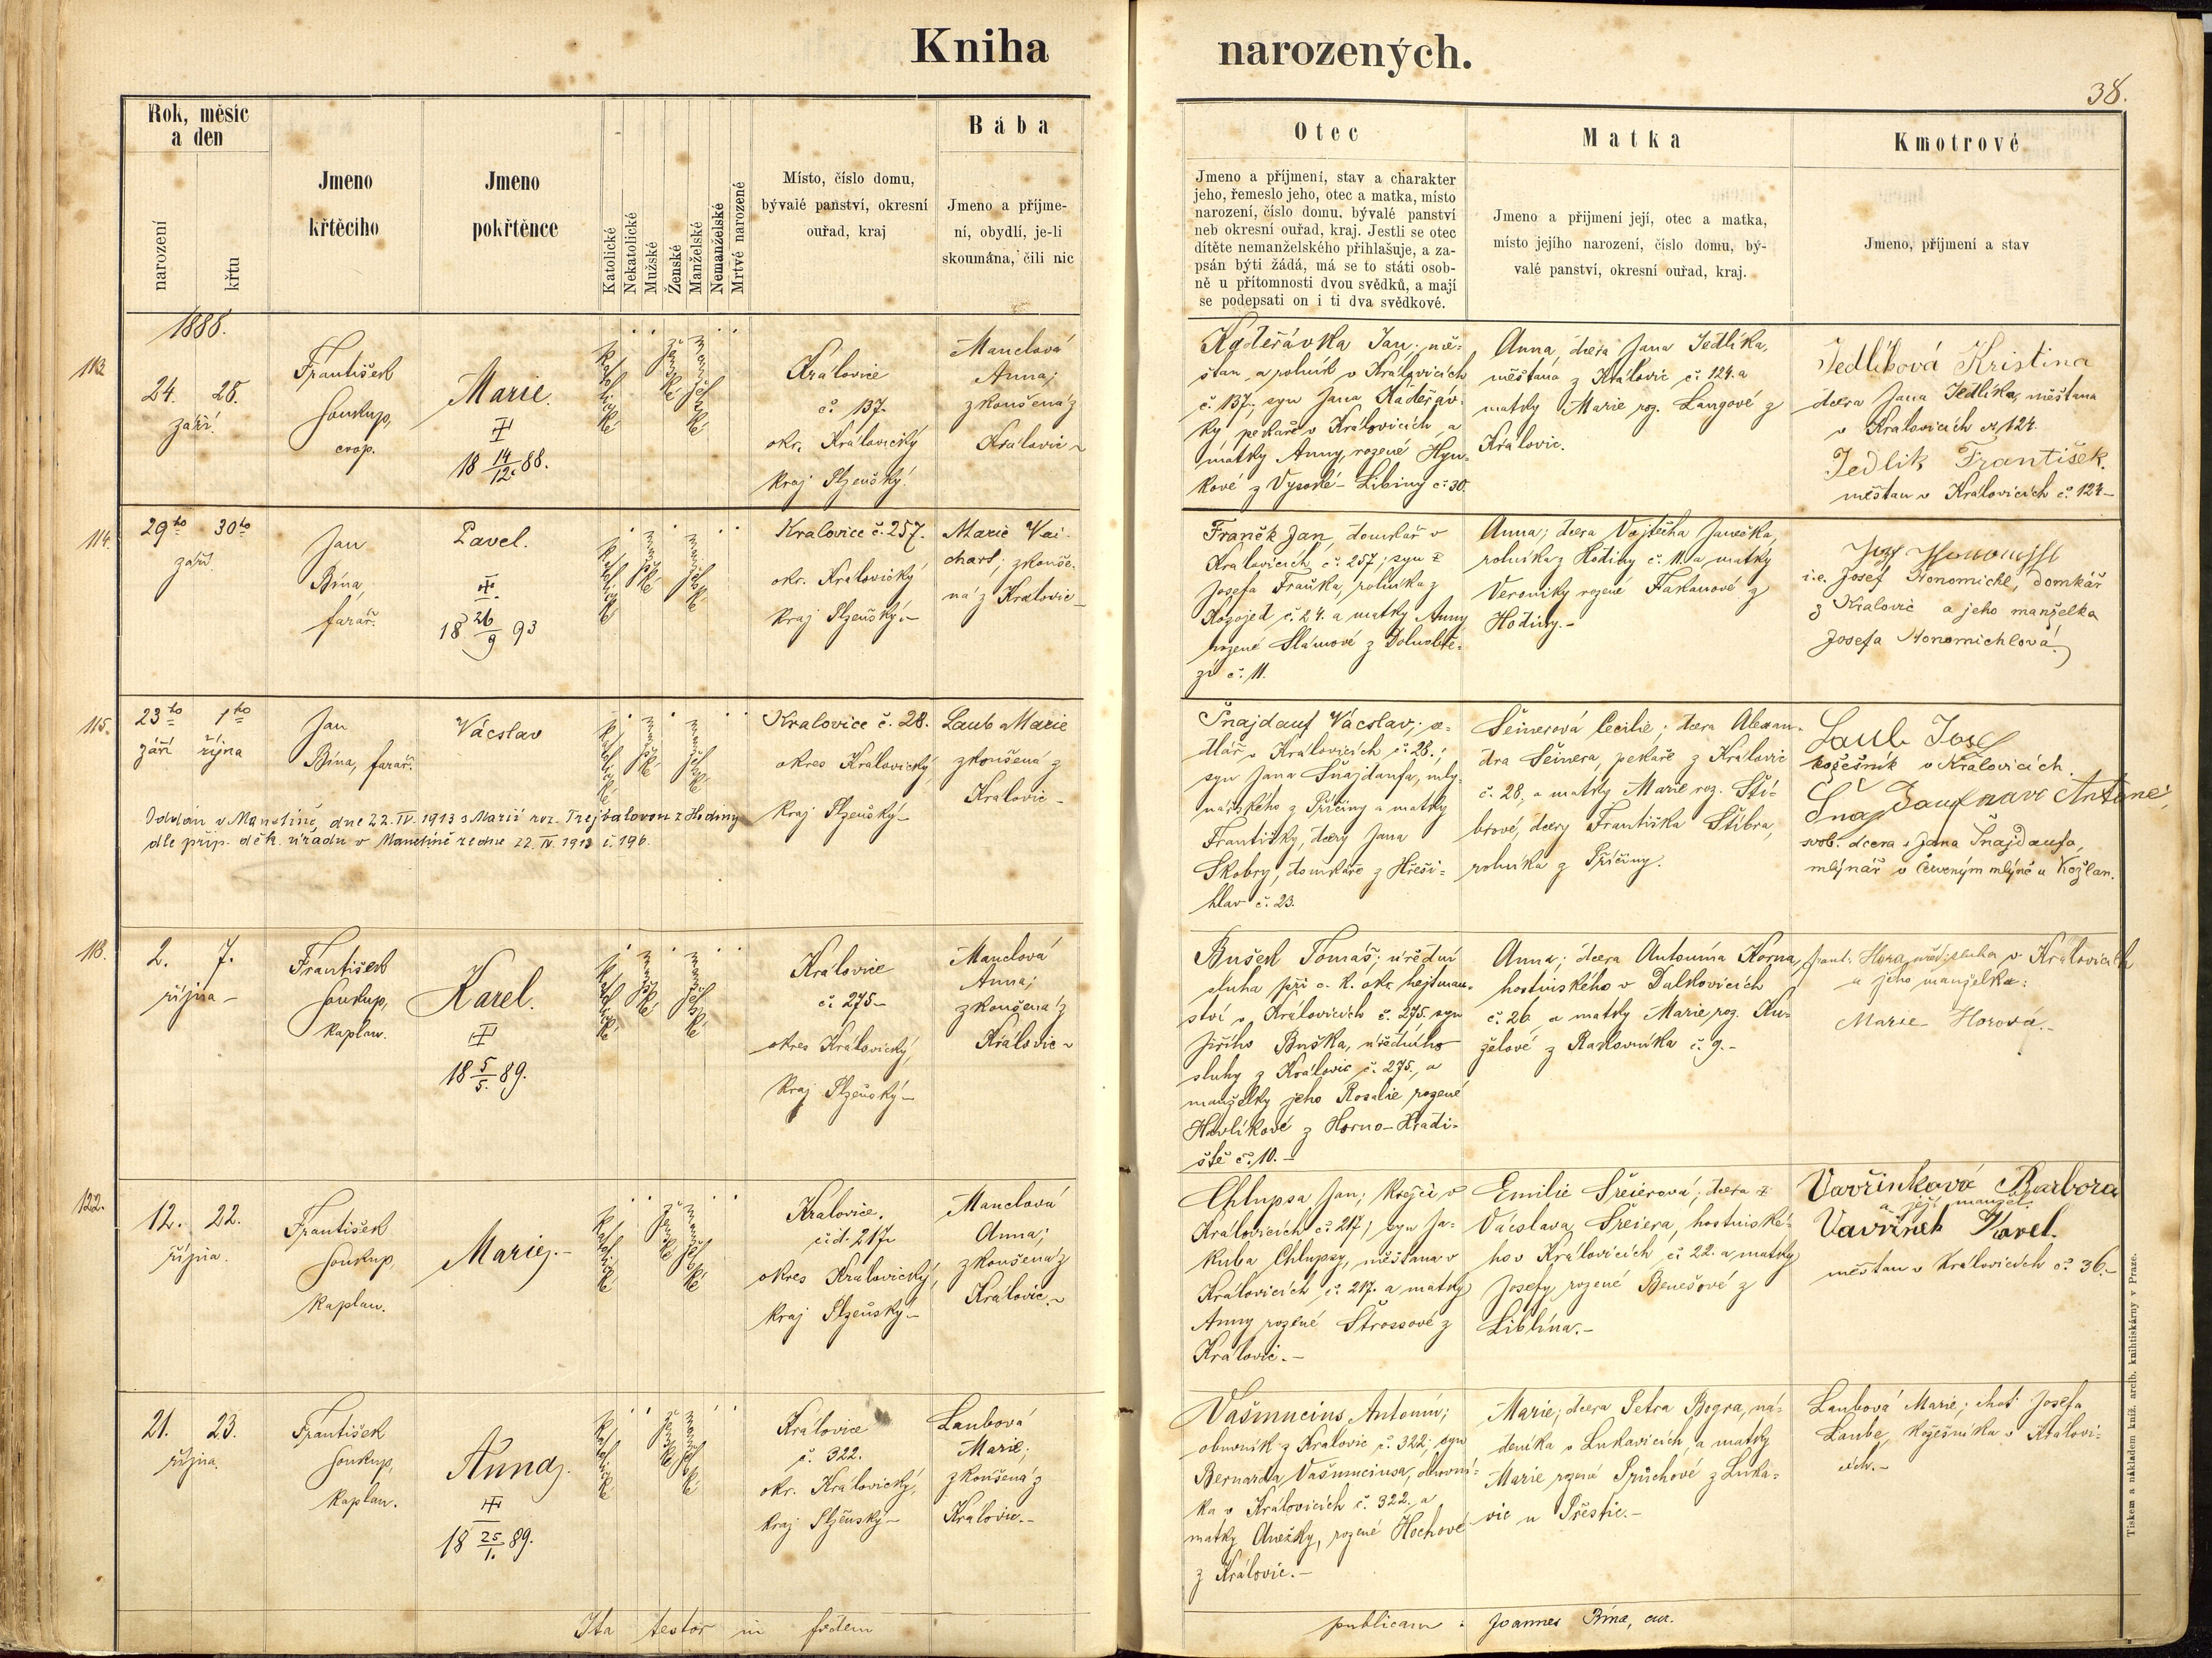 Kniha narozených.
38.
Rok, měsíc
a den
narození
křtu
Jmeno
křtěcího
Jmeno
pokřtěnce
Katolické
Nekatolické
Mužské
Ženské
Manželské
Nemanželské
Mrtvé narozené
Místo, číslo domu,
bývalé panství, okresní
ouřad, kraj
Bába
Jmeno a příjme-
ní, obydlí, je-li
skoumána, čili nic
Otec
Jmeno a příjmení, stav a charakter
jeho, řemeslo jeho, otec a matka, místo
narození, číslo domu, bývalé panství
neb okresní ouřad, kraj. Jestli se otec
dítěte nemanželského přihlašuje, a za-
psán býti žádá, má se to státi osob-
ně u přítomnosti dvou svědků, a mají
se podepsati on i ti dva svědkové.
Matka
Jmeno a přijmení její, otec a matka,
místo jejího narození, číslo domu, bý-
valé panství, okresní ouřad, kraj.
Kmotrové
Jmeno, příjmení a stav
1888.
113.
24. 28.
září.
František
Soukup,
coop.
Marie.
18 14/12 88.
katolické
ženské
manželské
Královice
č. 137.
okr. Královický
kraj Plzeňský.
Manclová
Anna;
zkoušená z
Královic
Kadeřávka Jan, mě-
šťan a rolník v Královicích
č. 137; syn Jana Kadeřáv-
ky pekaře v Královicích a
matky Anny, rozené Hyn-
kové z Vysoké-Libiny č. 30.
Anna, dcera Jana Jedlíka,
měšťana z Královic č. 124. a
matky Marie roz. Langové z
Královic.
Jedlíková Kristina
dcera Jana Jedlíka, měšťana
v Kralovicích č. 124
Jedlik František.
měšťan v Královicích č. 124
114.
29ho 30ho
září.
Jan
Bína,
farář.
Pavel.
18 26/9 93
katolické
mužské
manželské
Kralovice č. 257.
okr. Královický
kraj Plzeňský.
Marie Vai-
chart; zkouše-
ná z Kralovic
Franěk Jan, domkář v
Kralovicích č. 257; syn
Josefa Fraňka, rolníka z
Kozojed č. 24. a matky Anny
rozené Slámové z
č. 11.
Anna; dcera Vojtěcha Janečka,
rolníka z Hodiny č. 11. a matky
Veroniky rozené z
Hodiny.
i.e. Josef Nonomichl, domkář
z Kralovic a jeho manželka
Josefa Nonomichlová.
115.
23ho 1ho
září října
Jan
Bína, farář.
Vácslav
katolické
mužské
manželské
Kralovice č. 28.
okres Královický,
kraj Plzeňský
Laub Marie
zkoušená z
Kralovic
Oddán v Manětíně, dne 22. IV. 1913 s Marií roz. Trejbalovou z Hodiny
dle příp. děk. úřadu v Manětíně ze dne 22. IV. 1913 č. 196.
Šnajdauf Vácslav; se-
dlář v Kralovicích č. 28.;
syn Jana Šnajdaufa, mly-
nářského z Příčiny a matky
Františky, dcery Jana
Skobry, domkáře z Hřeši-
hlav č. 23.
Seinerová Cecilie; dcera Alexan-
dra Seinera, pekaře z Kralovic
č. 28., a matky Marie roz. Ští-
brové, dcery Františka Štíbra,
rolníka z Příčiny.
Laub Josef
kožešník v Kralovicích.
svob. dcera Jana Šnajdaufa,
mlýnář v Červeným mlýně u Kožlan.
118.
2. 7.
října
František
Soukup,
kaplan.
Karel.
18 5/5. 89.
katolické
mužské
manželské
Královice
č. 275
okres Královický,
kraj Plzeňský
Manclová
Anna;
zkoušená z
Královic
Bušek Tomáš; úřední
sluha při c. k. okr. hejtman-
ství v Královicích č. 275. syn
Jiřího Buška, úředního
sluhy z Královic č. 275., a
manželky jeho Rosalie, rozené
Havlíkové z Horno-Hradi-
ště č. 10.
Anna; dcera Antonína Korna,
hostinského v Dalkovicích
č. 26. a matky Marie, roz. Ku-
želové z Rakovníka č. 9.
Frant. Hora, sluha v Královicích
a jeho manželka:
Marie Horová.
122.
12. 22.
října.
František
Soukup,
kaplan.
Marie.
katolické
ženské
manželské
Královice.
čd. 217
okres Královický,
kraj Plzeňský
Manclová
Anna;
zkoušená z
Královic.
Chlupsa Jan; krejčí v
Královicích č. 217, syn Ja-
kuba Chlupsy, měšťana v
Královicích č. 217. a matky
Anny rozené Štrossové z
Královic.
Emilie Šreierová; dcera
Vácslava Šreiera, hostinské-
ho v Královicích, č. 22. a matky
Josefy, rozené Benešové z
Liblína.
Vavřinková Barbora
a její manžel
Vavřinek Karel.
měšťan v Kralovicích č. 36.
21. 23.
října.
František
Soukup,
kaplan.
Anna.
18 25/1. 89.
katolické
ženské
manželské
Královice
č. 322.
okr. Královický,
kraj Plzeňský
Laubová
Marie;
zkoušená z
Kralovic.
Vašmucius Antonín;
obuvník z Kralovic č. 322; syn
Bernarda Vašmuciusa, obuvní-
ka v Královicích č. 322. a
matky Anežky, rozené Hochové
z Královic.
Marie; dcera Petra Bogra, ná-
deníka v Lukavicích, a matky
Marie rozené Průchové z Luka-
vic u Přeštic.
Laubová Marie; choť Josefa
Lauba, kožešníka v Královi-
cích.
Ita testor in fidem publicam: Joannes Bína, cur.
Tiskem a nákladem kníž. arcib. knihtiskárny v Praze.